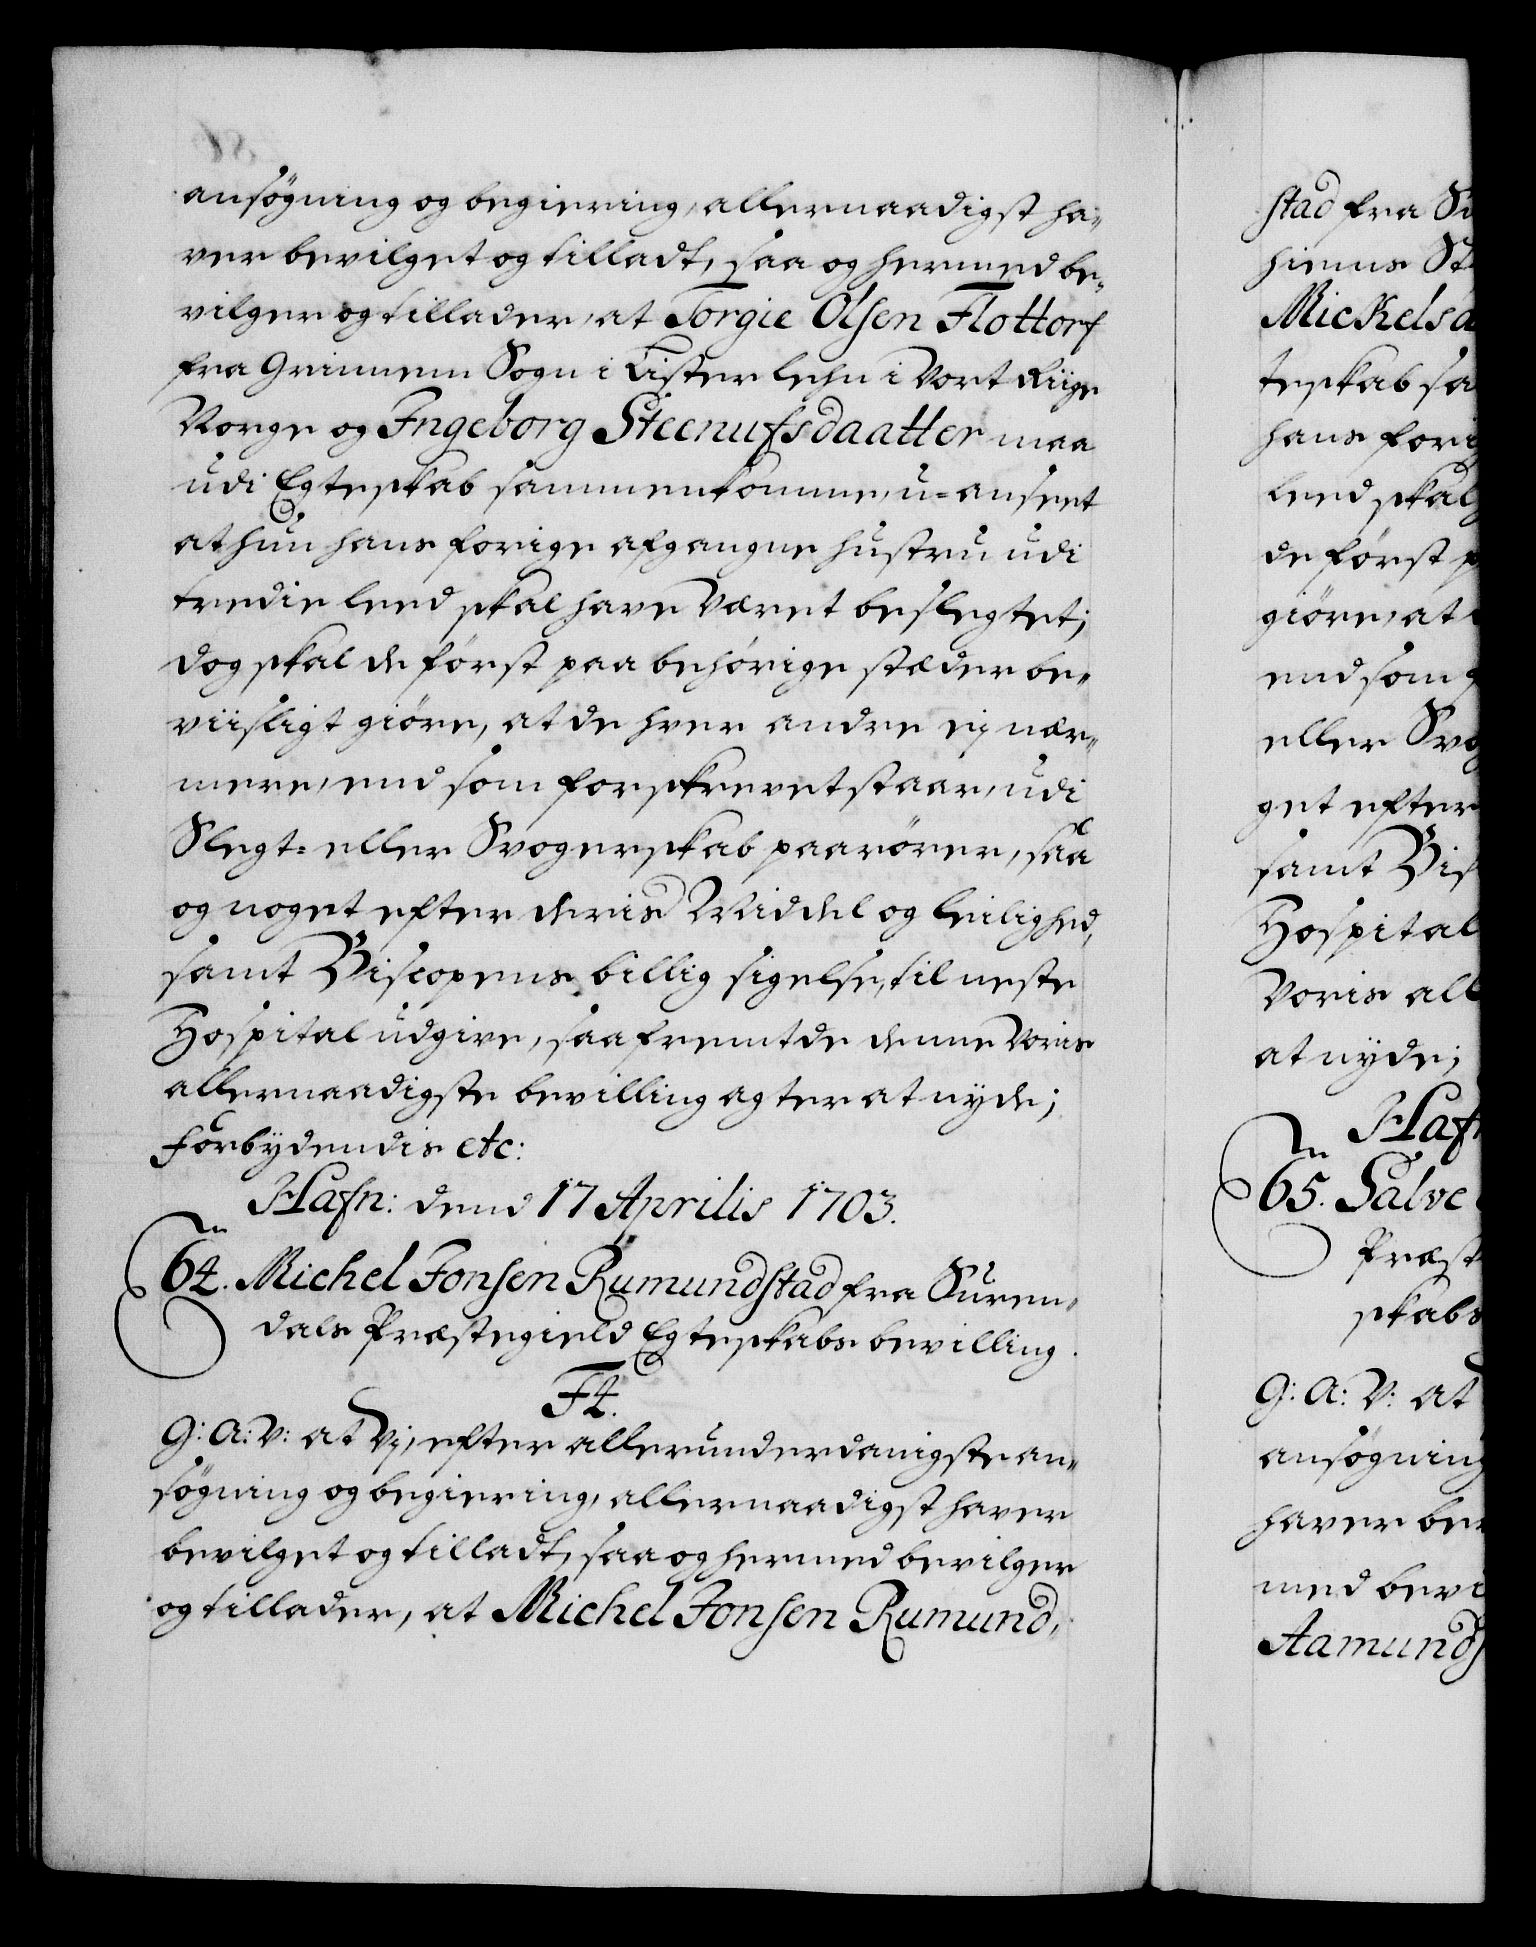 ansøgning og begiering, allernaadigst ha-
ver bevilget og tilladt, saa og hermed be-
vilger og tillader, at Torgie Olsen Flottorf
fra Grinnem Sogn i Lister lehn i Vort Riige
Norge og Ingeborg Steenufsdaatter maa
udi Egteskab sammenkomme, u-anseet
at hun hans forige afgangne hustru udi
tredie leed skal have været beslegtet;
dog skal de først paa behørige stæder be-
viisligt giøre, at de hver andre ej nær-
mere, end som forskrevet staar, udi
Slegt- eller Svogerskab paarører, saa
og noget efter deris Middel og leilighed,
samt Biscopens billig sigelse, til neste
Hospital udgive, saafremt de denne Voris
allernaadigste bevilling agter at nyde;
Forbydendis etc:
Hafn: dend 17 Aprilis 1703.
64. Michel Jonsen Rumundstad fra Suren-
dals Præstegield Egteskabs bevilling.
F4.
G: A: V: at Vj, efter allerunderdanigste an-
søgning og begiering, allernaadigst haver
bevilget og tilladt, saa og hermed bevilger
og tillader, at Michel Jonsen Rumund-
stad fra
hiems
teskab
hans
leed
de først
giøre, at
end som
eller
get efter
samt
Hospital
Voris
at nyde;
65. Salve
G: A: V: at
ansøgning
haver
med